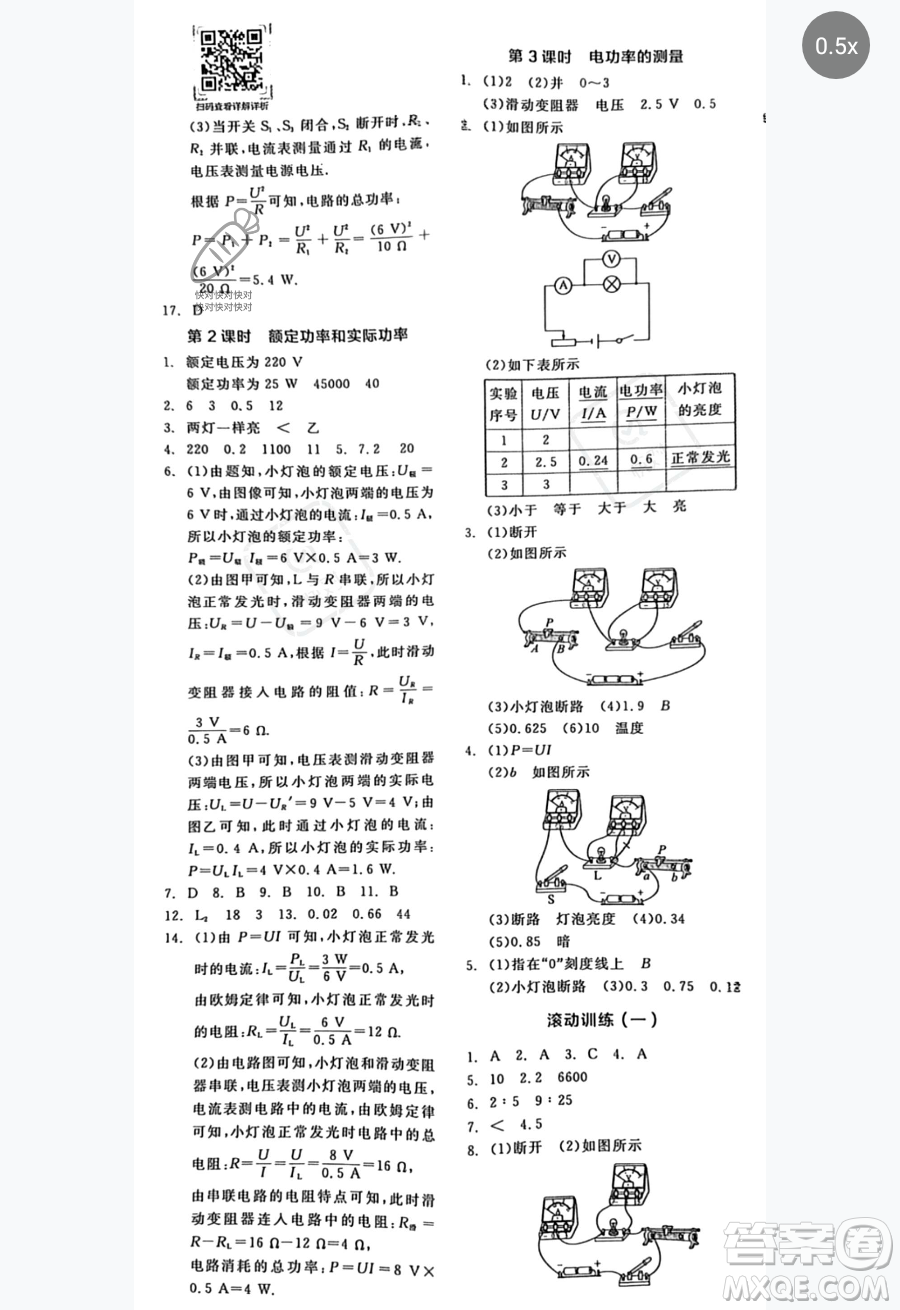 0.5x
扫码查看详解详析
(3)当开关 S₁、S₃ 闭合,S₂ 断开时,R₁、
R₂ 并联,电流表测量通过 R₁ 的电流,
电压表测量电源电压.
根据 P=U²/R可知,电路的总功率:
P=P₁+P₂=U²/R₁+U²/R₂=(6 V)²/10 Ω+
(6 V)²/20 Ω=5.4 W.
快对快对快对
快对快对快对
17. D
第 2 课时 额定功率和实际功率
1. 额定电压为 220 V
额定功率为 25 W 45000 40
2. 6 3 0.5 12
3. 两灯一样亮 < 乙
4. 220 0.2 1100 11 5. 7.2 20
6. (1)由题知,小灯泡的额定电压:U额=
6 V,由图像可知,小灯泡两端的电压为
6 V时,通过小灯泡的电流:I额=0.5 A,
所以小灯泡的额定功率:
P额=U额 I额=6 V×0.5 A=3 W.
(2)由图甲可知,L与 R 串联,所以小灯
泡正常发光时,滑动变阻器两端的电
压:UR=U-U额=9 V-6 V=3 V,
IR=I额=0.5 A,根据 I=U/R,此时滑动
变阻器接入电路的阻值:R=UR/IR=
3 V/0.5 A=6 Ω.
(3)由图甲可知,电压表测滑动变阻器
两端电压,所以小灯泡两端的实际电
压:UL=U-UR′=9 V-5 V=4 V;由
图乙可知,此时通过小灯泡的电流:
IL=0.4 A,所以小灯泡的实际功率:
P=ULIL=4 V×0.4 A=1.6 W.
7. D 8. B 9. B 10. B 11. B
12. L₂ 18 3 13. 0.02 0.66 44
14. (1)由 P=UI 可知,小灯泡正常发光
时的电流:IL=PL/UL=3 W/6 V=0.5 A,
由欧姆定律可知,小灯泡正常发光时
的电阻:RL=UL/IL=6 V/0.5 A=12 Ω.
(2)由电路图可知,小灯泡和滑动变阻
器串联,电压表测小灯泡两端的电压,
电流表测电路中的电流,由欧姆定律
可知,小灯泡正常发光时电路中的总
电阻:R=U/I=U/IL=8 V/0.5 A=16 Ω,
由串联电路的电阻特点可知,此时滑
动变阻器连入电路中的电阻:R滑=
R-RL=16 Ω-12 Ω=4 Ω;
电路消耗的总功率:P=UI=8 V×
0.5 A=4 W.
第 3 课时 电功率的测量
1. (1)2 (2)并 0~3
(3)滑动变阻器 电压 2.5 V 0.5
2. (1)如图所示
A V
- +
V
A
(2)如下表所示
实验 电压 电流 电功率 小灯泡
序号 U/V I/A P/W 的亮度
1 2
2 2.5 0.24 0.6 正常发光
3 3
(3)小于 等于 大于 大 亮
3. (1)断开
(2)如图所示
A V
P
A B
- +
(3)小灯泡断路 (4)1.9 B
(5)0.625 (6)10 温度
4. (1)P=UI
(2)b 如图所示
A V
P
S L a b
(3)断路 灯泡亮度 (4)0.34
(5)0.85 暗
5. (1)指在“0”刻度线上 B
(2)小灯泡断路 (3)0.3 0.75 0.12
滚动训练(一)
1. A 2. A 3. C 4. A
5. 10 2.2 6600
6. 2∶5 9∶25
7. < 4.5
8. (1)断开 (2)如图所示
V A
答案圈
MXQE.COM